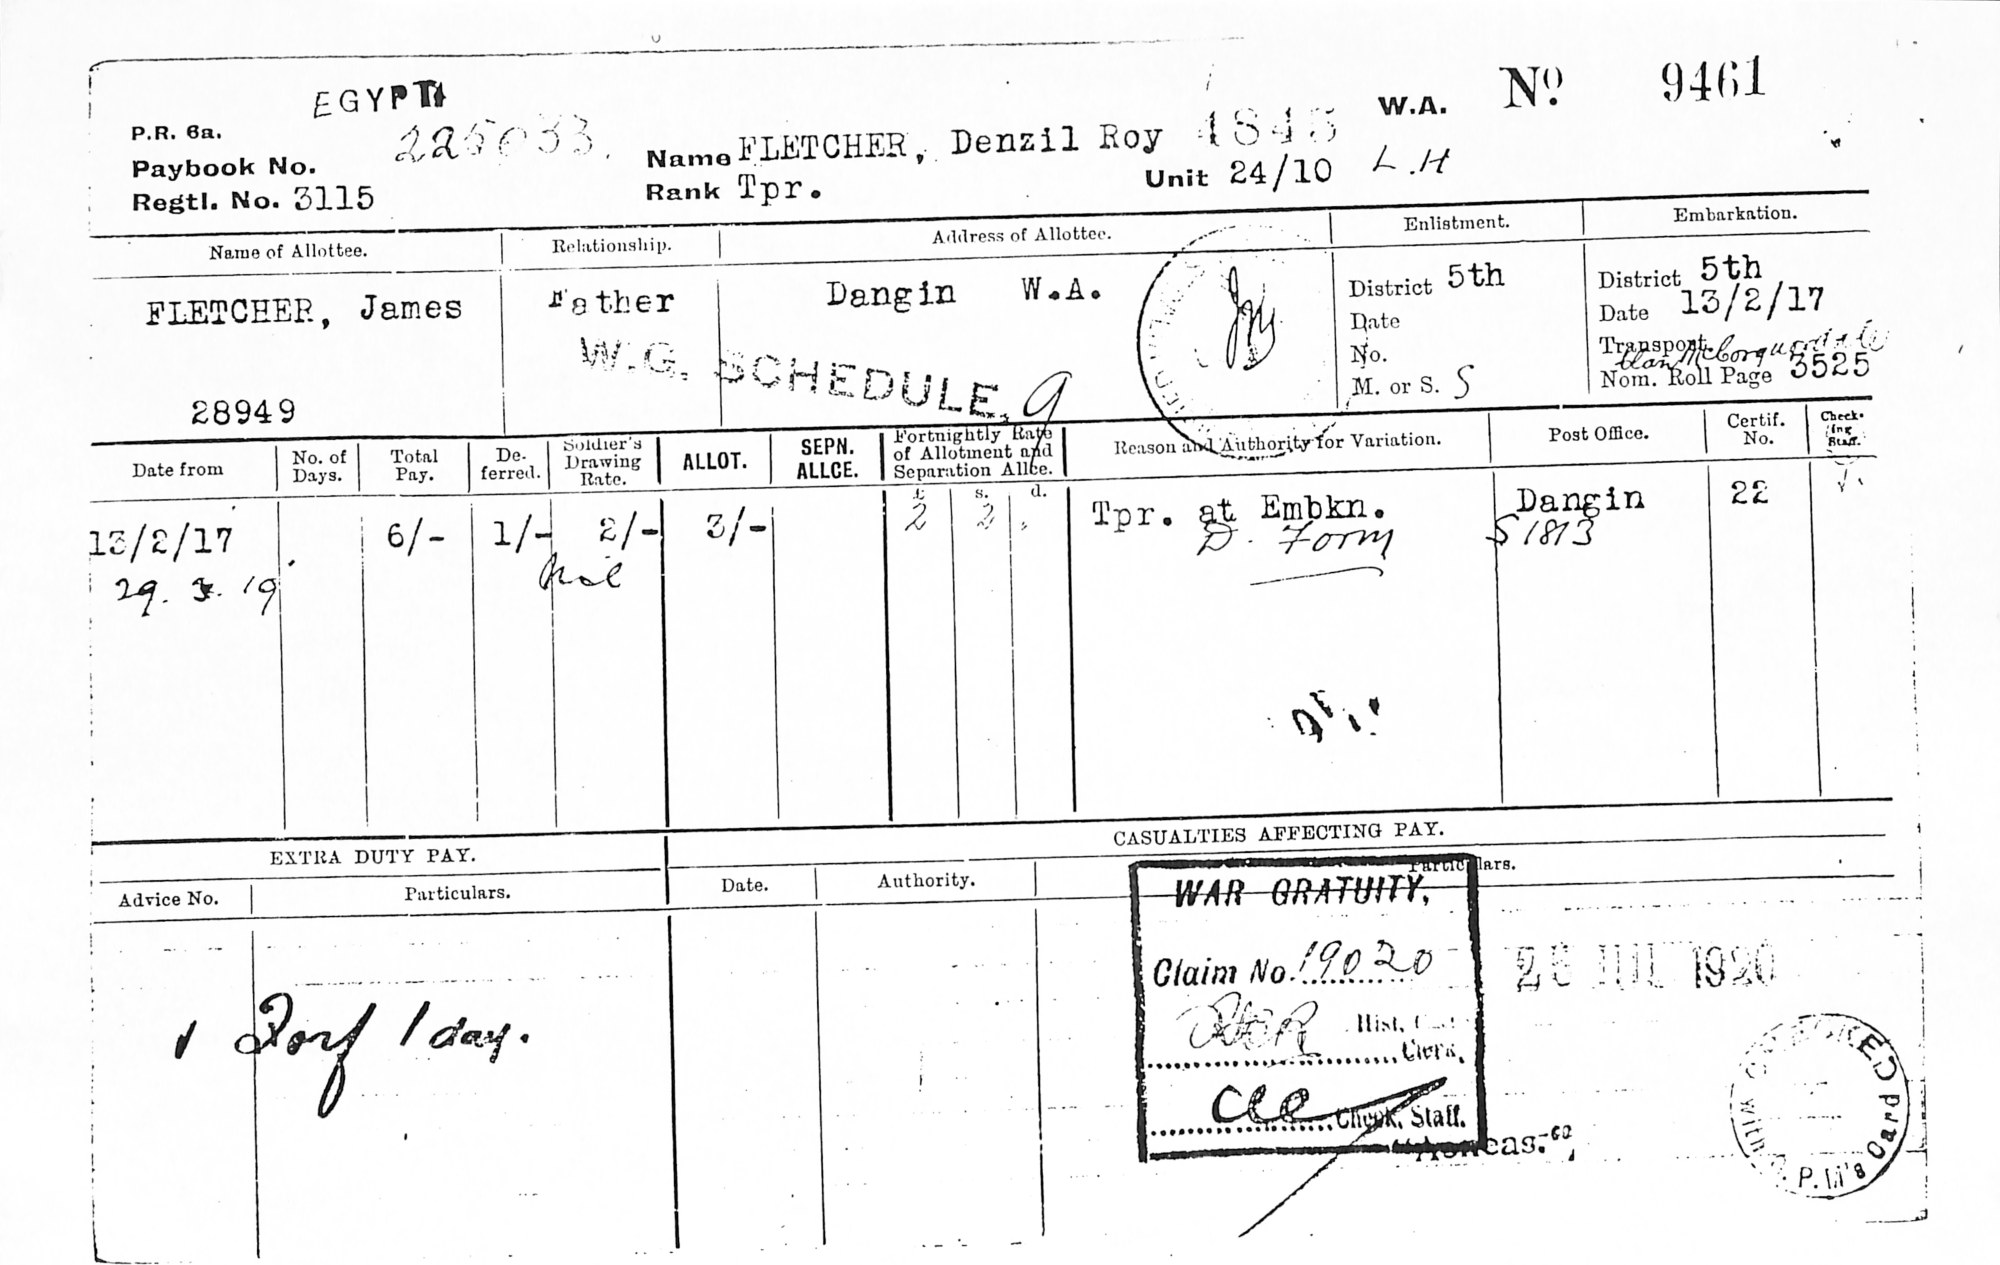 EGYPT
P.R. 6a.
Paybook No. 225033.
Regtl. No. 3115
Name FLETCHER, Denzil Roy 4845
Rank Tpr.
Unit 24/10 L.H
W.A. No. 9461
Name of Allottee. Relationship. Address of Allottee. Enlistment. Embarkation.
FLETCHER, James Father Dangin W.A.
28949
W.G. SCHEDULE. 9
District 5th
Date
No.
M. or S. S
District 5th
Date 13/2/17
Transport.
Nom. Roll Page 3525
Date from No. of Days. Total Pay. De-ferred. Soldier's Drawing Rate. ALLOT. SEPN. ALLCE. Fortnightly Rate of Allotment and Separation Allce. Reason and Authority for Variation. Post Office. Certif. No. Check-ing Staff.
£ s. d.
13/2/17 6/- 1/- 2/- 3/- 2 2 Tpr. at Embkn. Dangin 22
29. 3. 19 D. Form S 1813
EXTRA DUTY PAY. CASUALTIES AFFECTING PAY.
Advice No. Particulars. Date. Authority. Particulars.
1 Forf 1 day.
WAR GRATUITY.
Claim No. 19020
Hist. Clerk.
Check. Staff.
JUL 1920
CHECKED
P.M's Card